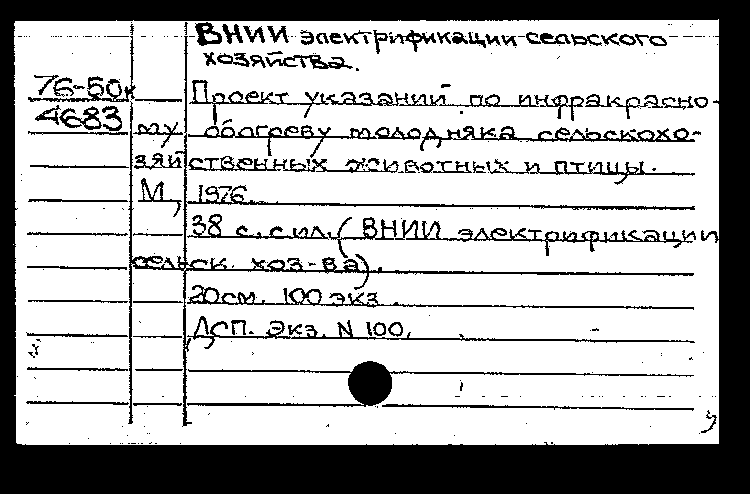 ВНИИ электрификации сельского
хозяйства.
76-50к
4683
Проект указаний по инфракрасно-
му обогреву молодняка сельскохо-
зяйственных животных и птицы.
М, 1976.
38 с. с ил. (ВНИИ электрификации
сельск. хоз-ва).
20см. 100 экз.
ДСП. Экз. N 100.